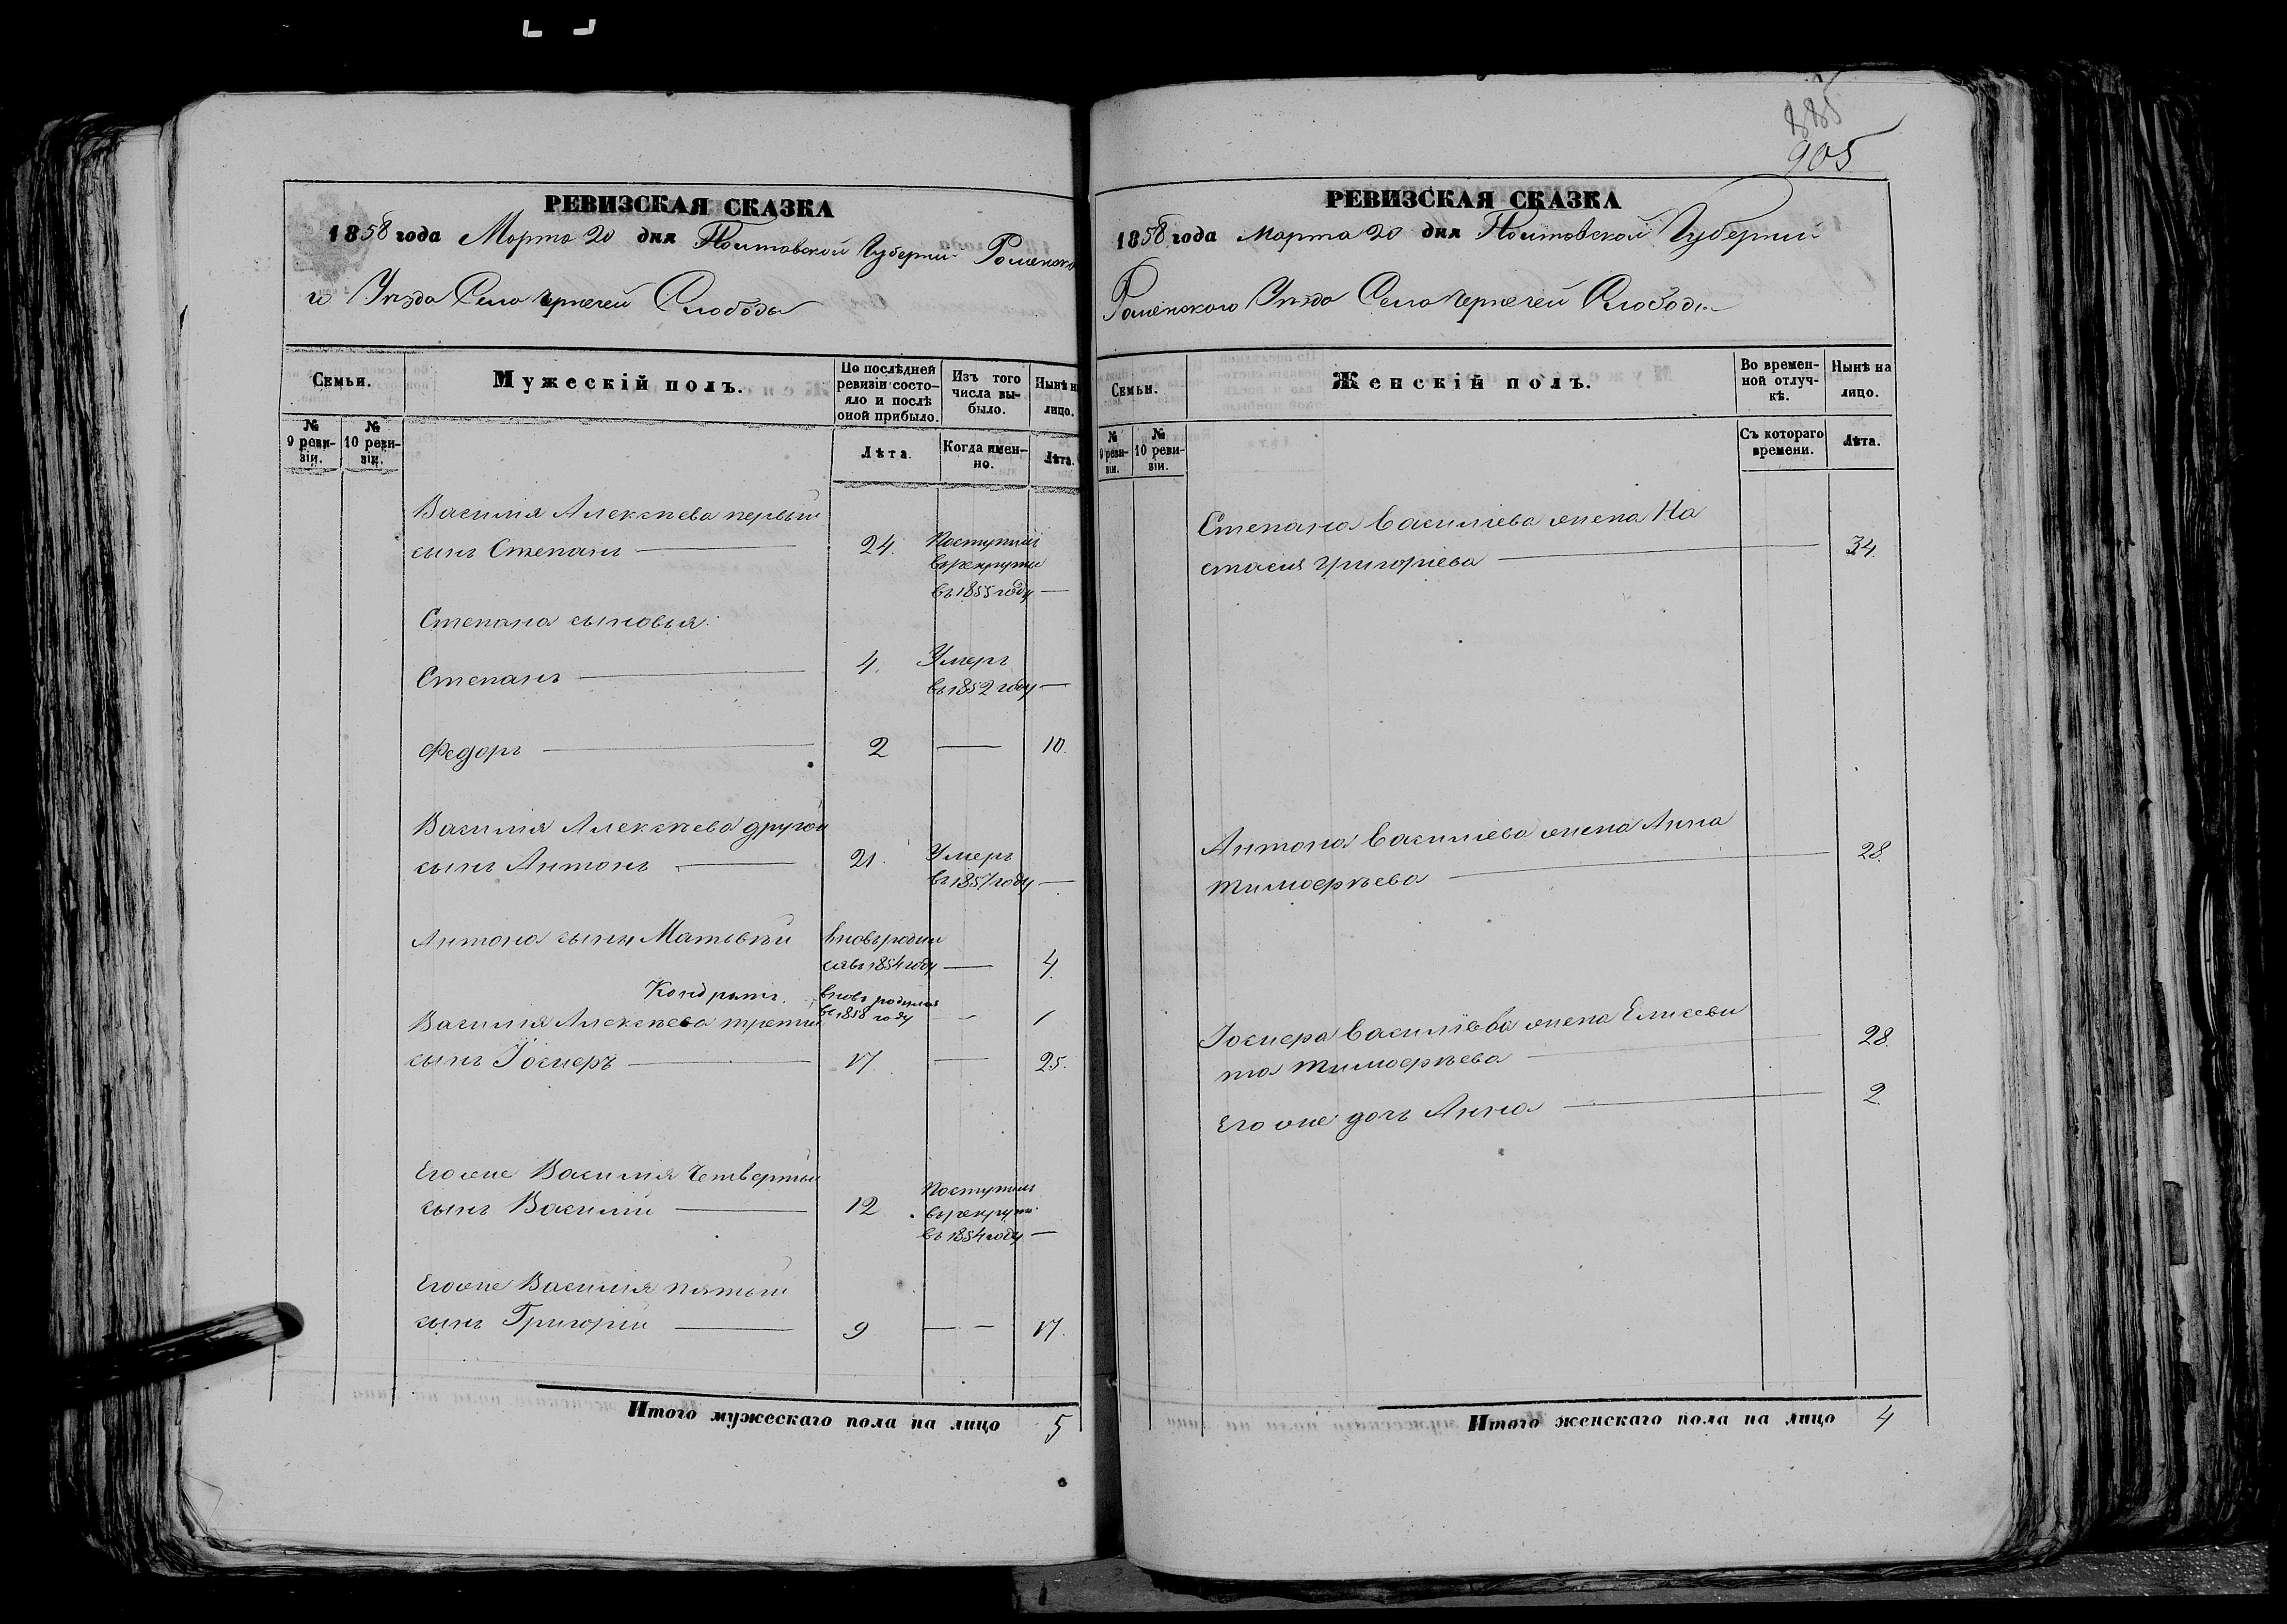 885
905
РЕВИЗСКАЯ СКАЗКА
1858 года Марта 20 дня Полтавской Губернии Роменско
го Уѣзда Села Чернечей Слободы
Семьи.
Мужескій полъ.
По послѣдней ревизіи состояло и послѣ оной прибыло.
Изъ того числа выбыло.
Нынѣ на лицо.
№ 9 ревизіи.
№ 10 ревизіи.
Лѣта.
Когда именно.
Лѣта.
Василія Алексѣева первый
сынъ Степанъ 24. Поступилъ
въ рекруты
въ 1855 году —
Степана сыновья:
Степанъ 4. Умеръ
въ 1852 году —
Федоръ 2 — 10.
Василія Алексѣева другой
сынъ Антонъ 21. Умеръ
въ 1857 году —
Антона сыны Матвѣй вновь родил
ся въ 1854 году — 4.
Кондратъ. вновь родился
въ 1858 году — 1
Василія Алексѣева третий
сынъ Іосиеръ 17. — 25.
Его же Василія Четвертый
сынъ Василий 12 Поступилъ
въ рекруты
въ 1854 году —
Его же Василія пятый
сынъ Григорій 9 — — 17.
Итого мужескаго пола на лицо 5
РЕВИЗСКАЯ СКАЗКА
1858 года Марта 20 дня Полтавской Губернии
Роменского Уѣзда Села Чернечей Слободы
Семьи.
Женскій полъ.
Во временной отлучкѣ.
Нынѣ на лицо.
№ 9 ревизіи.
№ 10 ревизіи.
Съ котораго времени.
Лѣта.
Степана Василіева жена На
стасия Григоріева 34.
Антона Василіева жена Анна
Тимоѳѣева 28.
Василіева жена Елисаве
та Тимоѳѣева 28.
Его же дочь Анна 2.
Итого женскаго пола на лицо 4